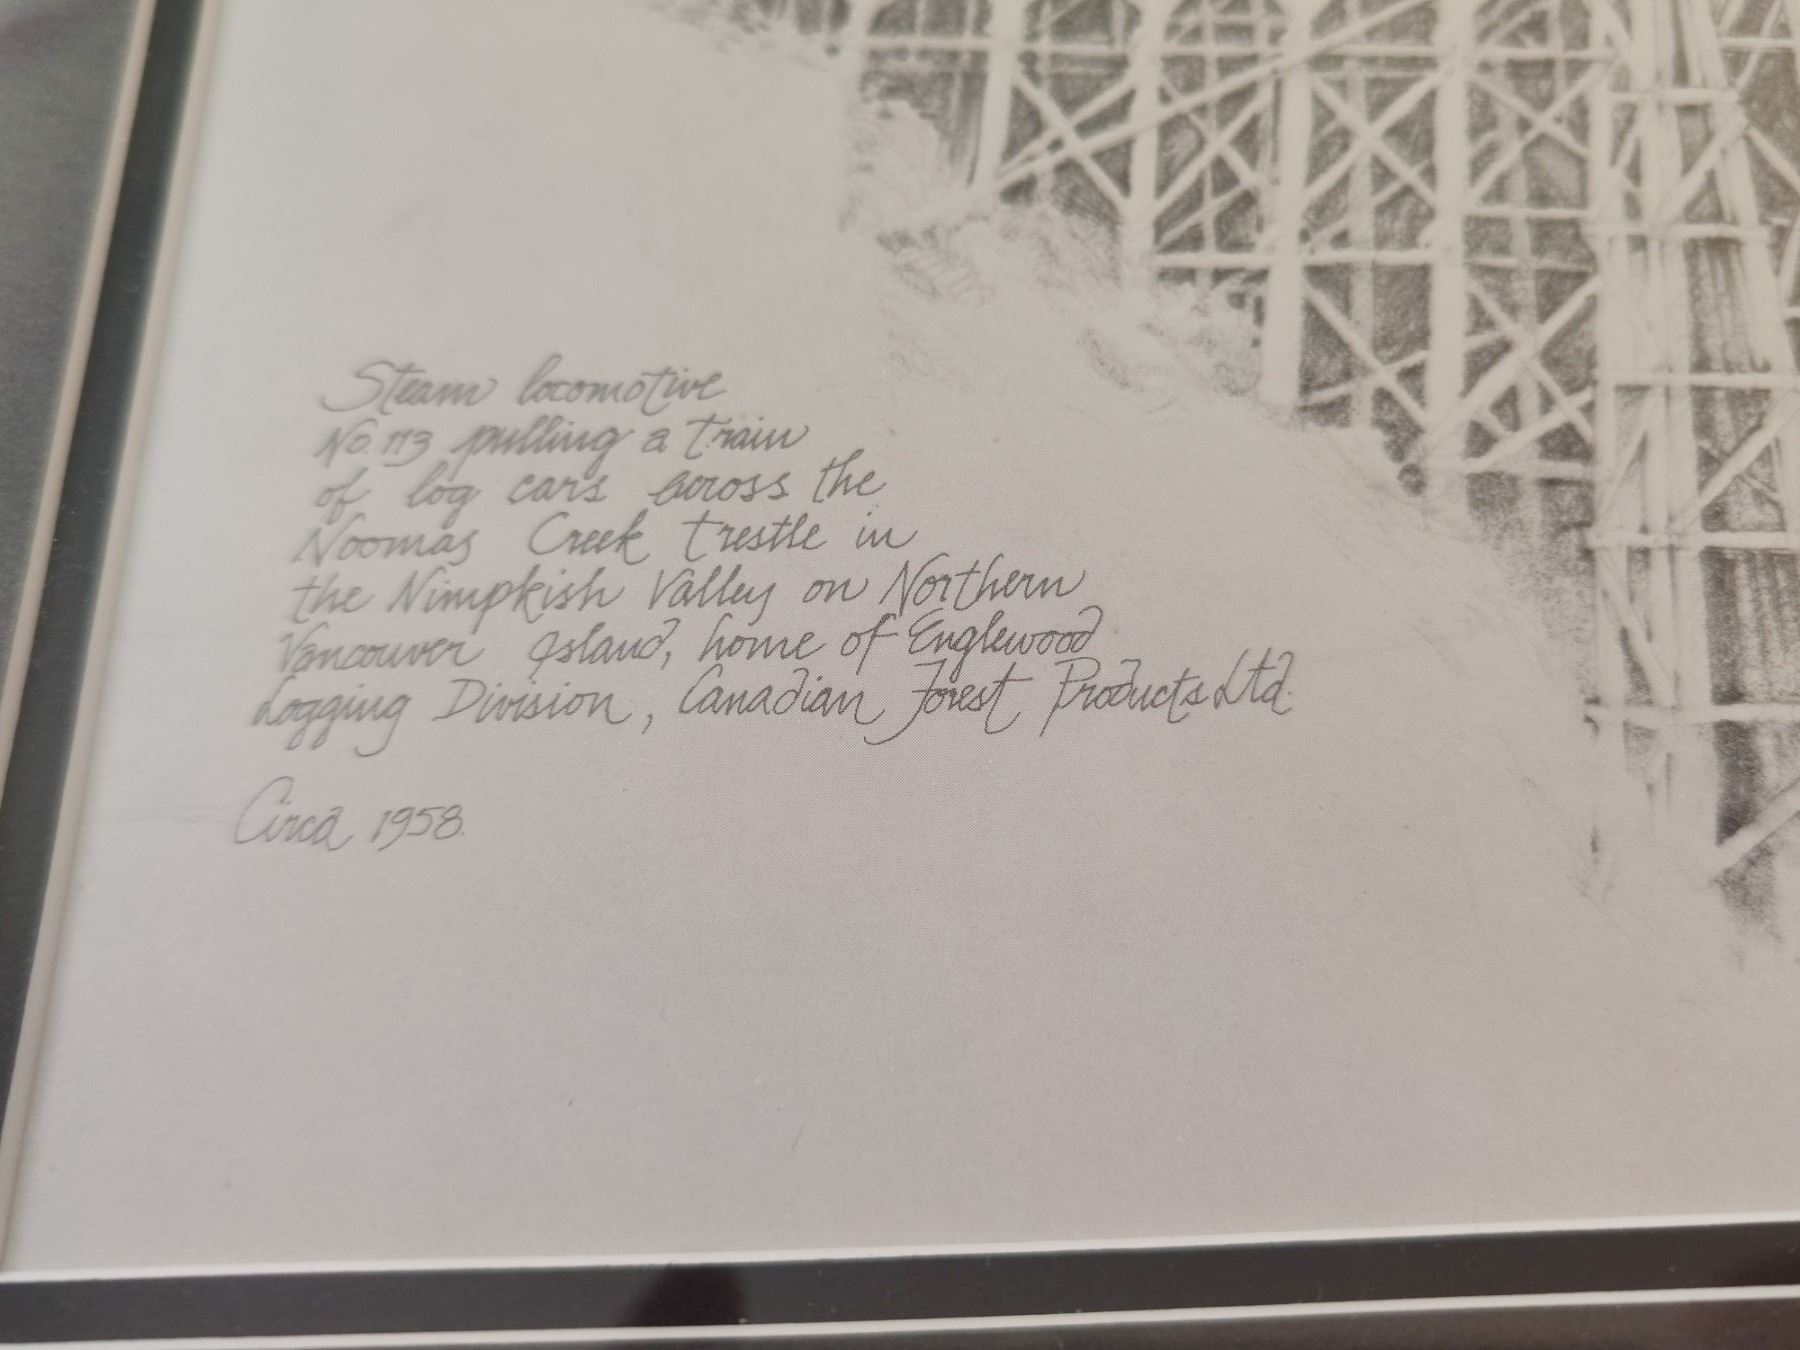 Steam locomotive
No. 113 pulling a train
of log cars across the
Noomas Creek trestle in
the Nimpkish Valley on Northern
Vancouver Island, home of Englewood
Logging Division, Canadian Forest Products Ltd.
Circa 1958.